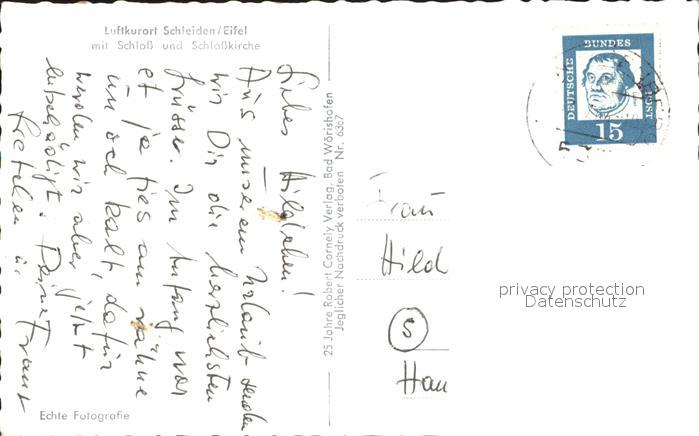 Luftkurort Schleiden/Eifel
mit Schloß und Schloßkirche
Liebes Hildchen!
Aus unserem Urlaub senden
wir Dir die herzlichsten
Grüsse. Im Anfang war
et ja ties am rähne
un och kalt, dafür
werden wir aber jetzt
entschädigt. Deine Frau
Gretchen u.
Echte Fotografie
25 Jahre Robert Cornely Verlag, Bad Wörishofen
Jeglicher Nachdruck verboten Nr. 6367
DEUTSCHE
BUNDES
POST
15
Frau
Hild
5
Han
privacy protection
Datenschutz